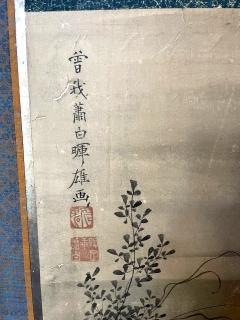 曽我蕭白暉雄画